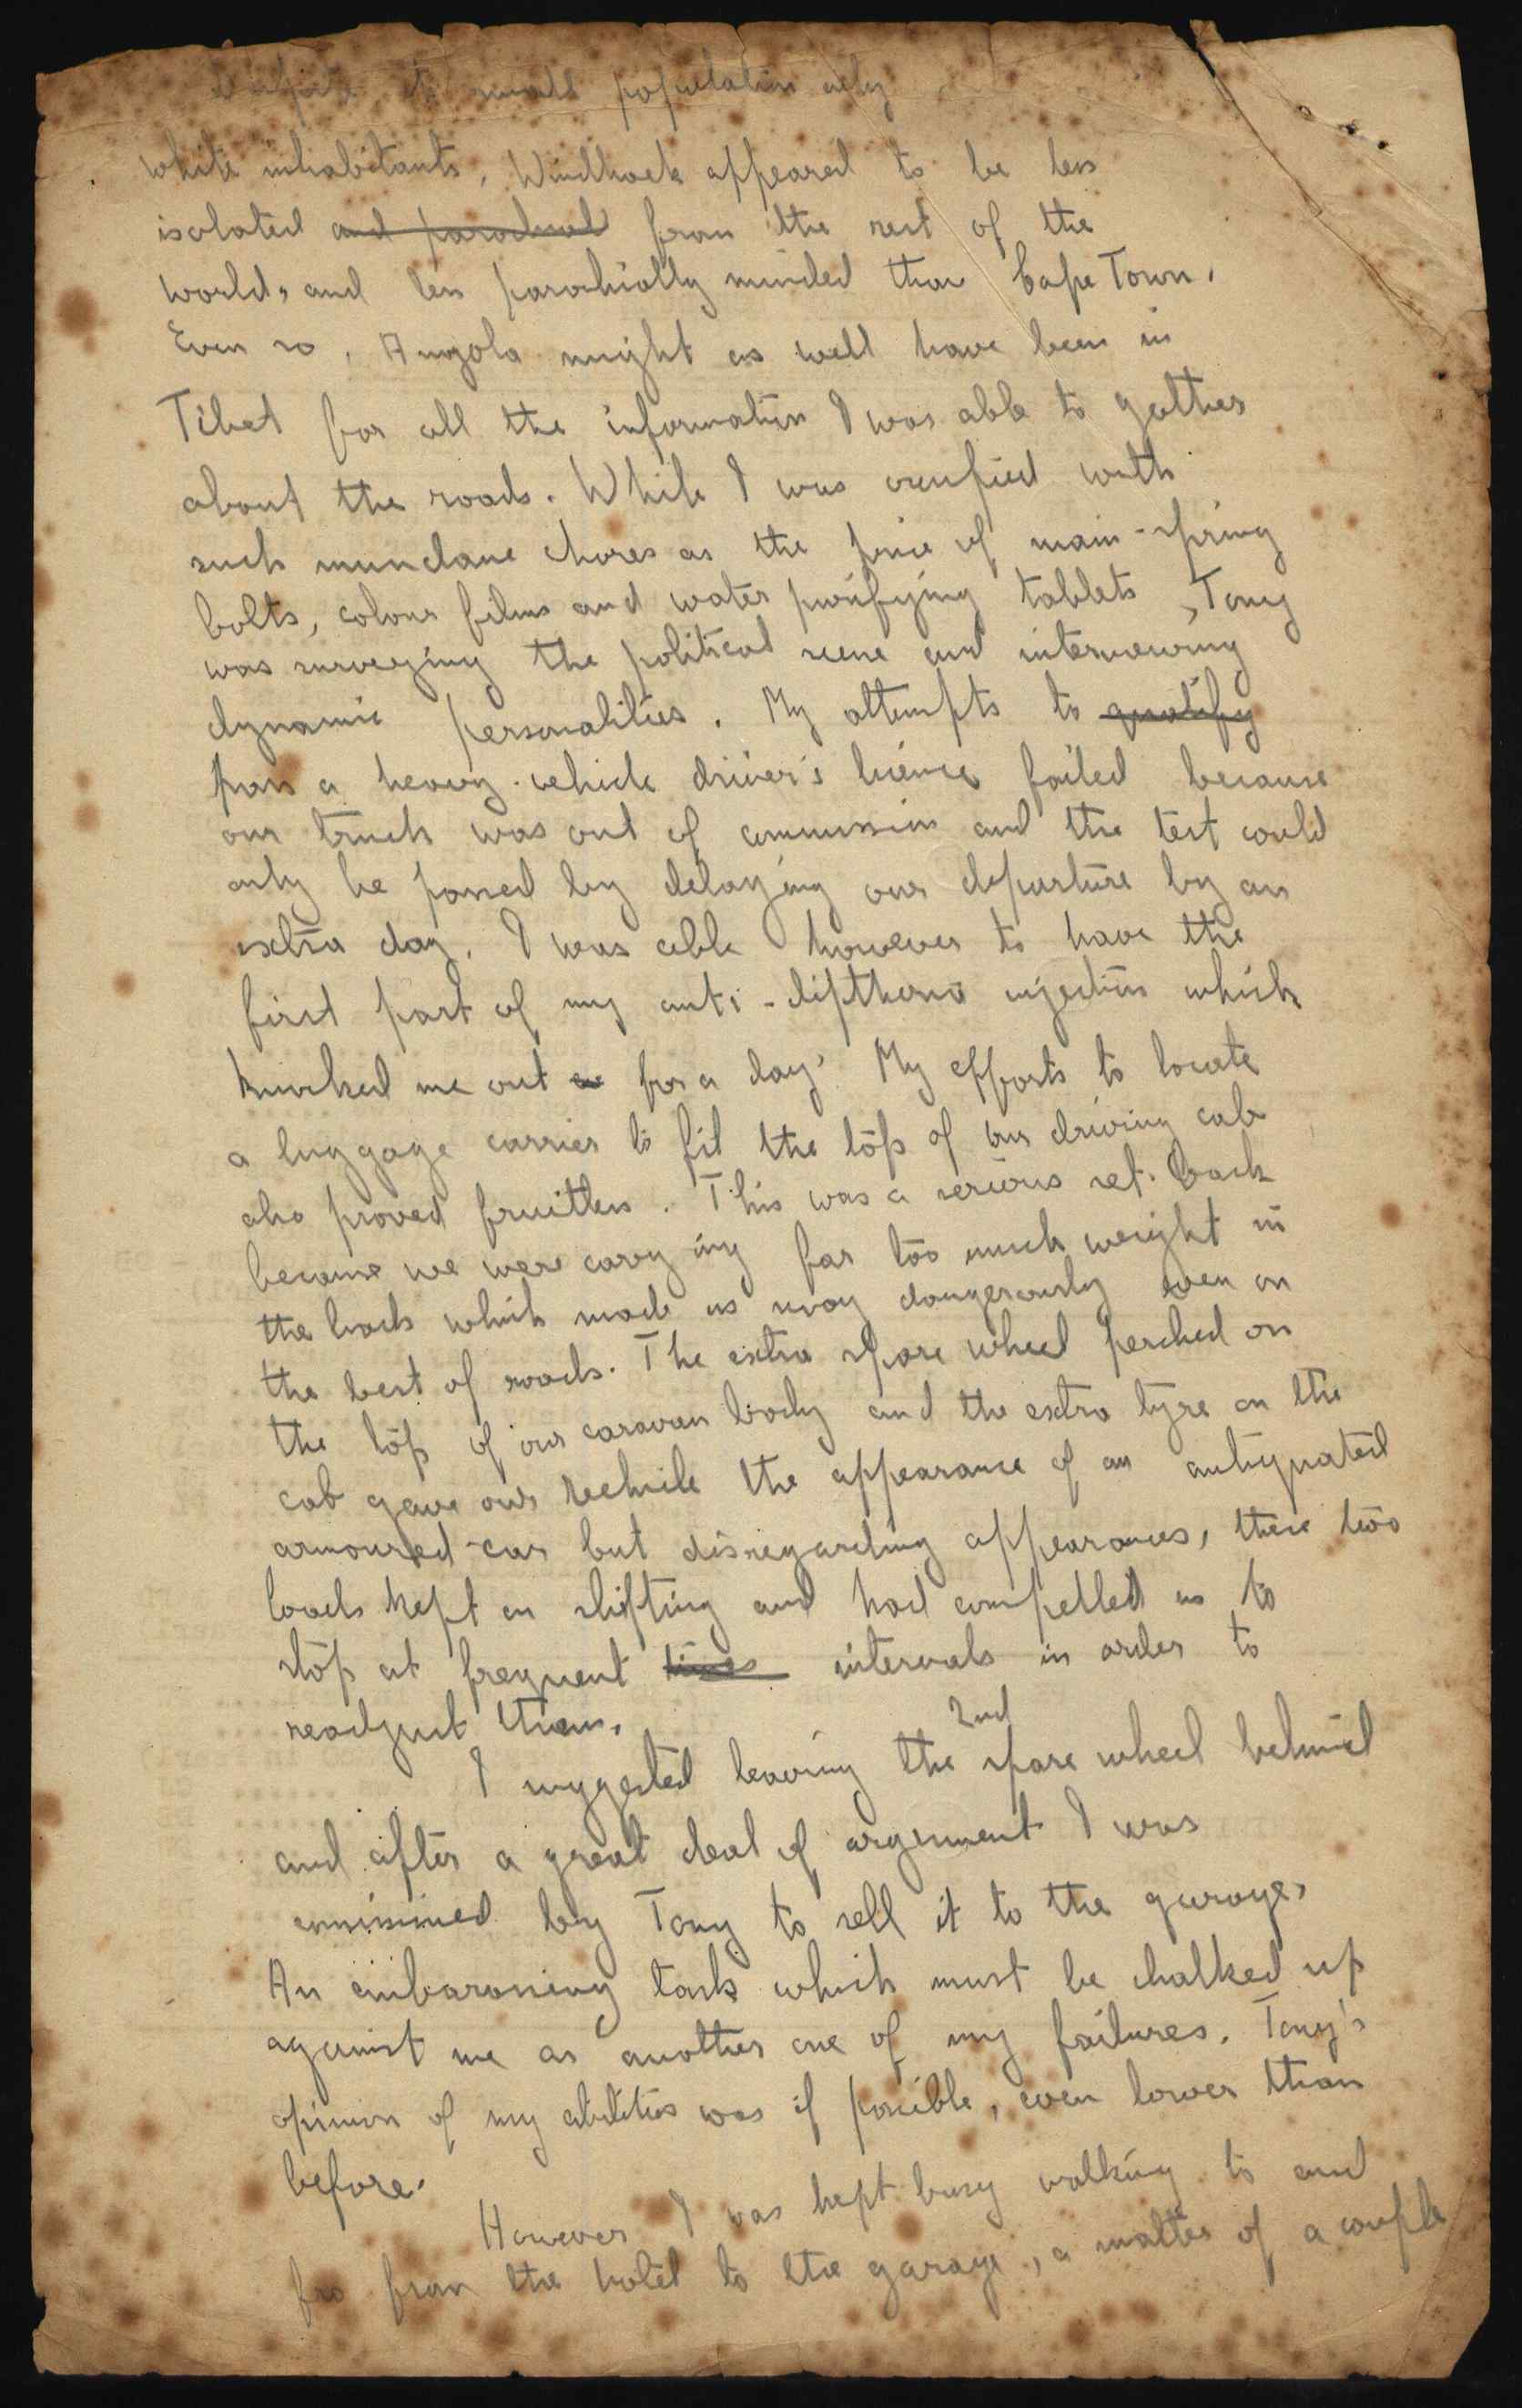 Despite its small population only
white inhabitants, Windhoek appeared to be less
isolated and parochial from the rest of the
world, and less parochially minded than Cape Town.
Even so, Angola might as well have been in
Tibet for all the information I was able to gather
about the roads. While I was occupied with
such mundane chores as the price of main-spring
bolts, colour films and water purifying tablets, Tony
was surveying the political scene and interviewing
dynamic personalities. My attempts to qualify
pass a heavy-vehicle driver's licence failed because
our truck was out of commission and the test could
only be passed by delaying our departure by an
extra day. I was able however to have the
first part of my anti-diptheria injection which
knocked me out for a day. My efforts to locate
a luggage carrier to fit the top of our driving cab
also proved fruitless. This was a serious set-back
because we were carrying far too much weight in
the back which made us sway dangerously even on
the best of roads. The extra spare wheel perched on
the top of our caravan body and the extra tyre on the
cab gave our vechile the appearance of an antiquated
armoured-car but disregarding appearances, these two
loads kept on shifting and had compelled us to
stop at frequent times intervals in order to
readjust them.
I suggested leaving the 2nd spare wheel behind
and after a great deal of argument I was
commissioned by Tony to sell it to the garage,
An embarassing task which must be chalked up
against me as another one of my failures. Tony's
opinion of my abilities was if possible, even lower than
before.
However I was kept busy walking to and
fro from the hotel to the garage, a matter of a couple